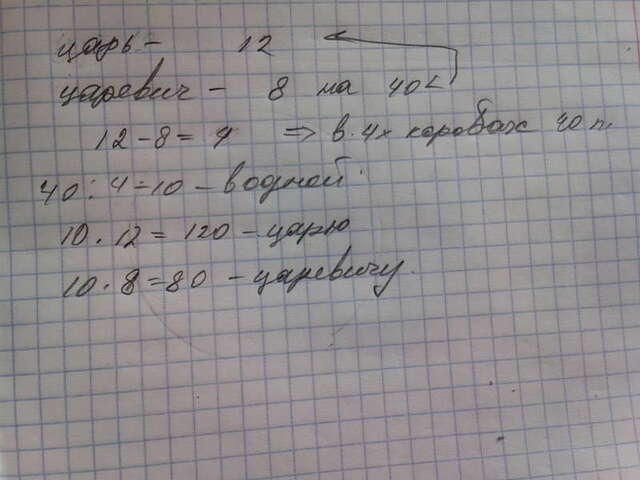 царь - 12
царевич - 8 на 40<
12-8=4 => в 4х коробах 40 п.
40:4=10 - в одной.
10.12=120 - царю
10.8=80 - царевичу.